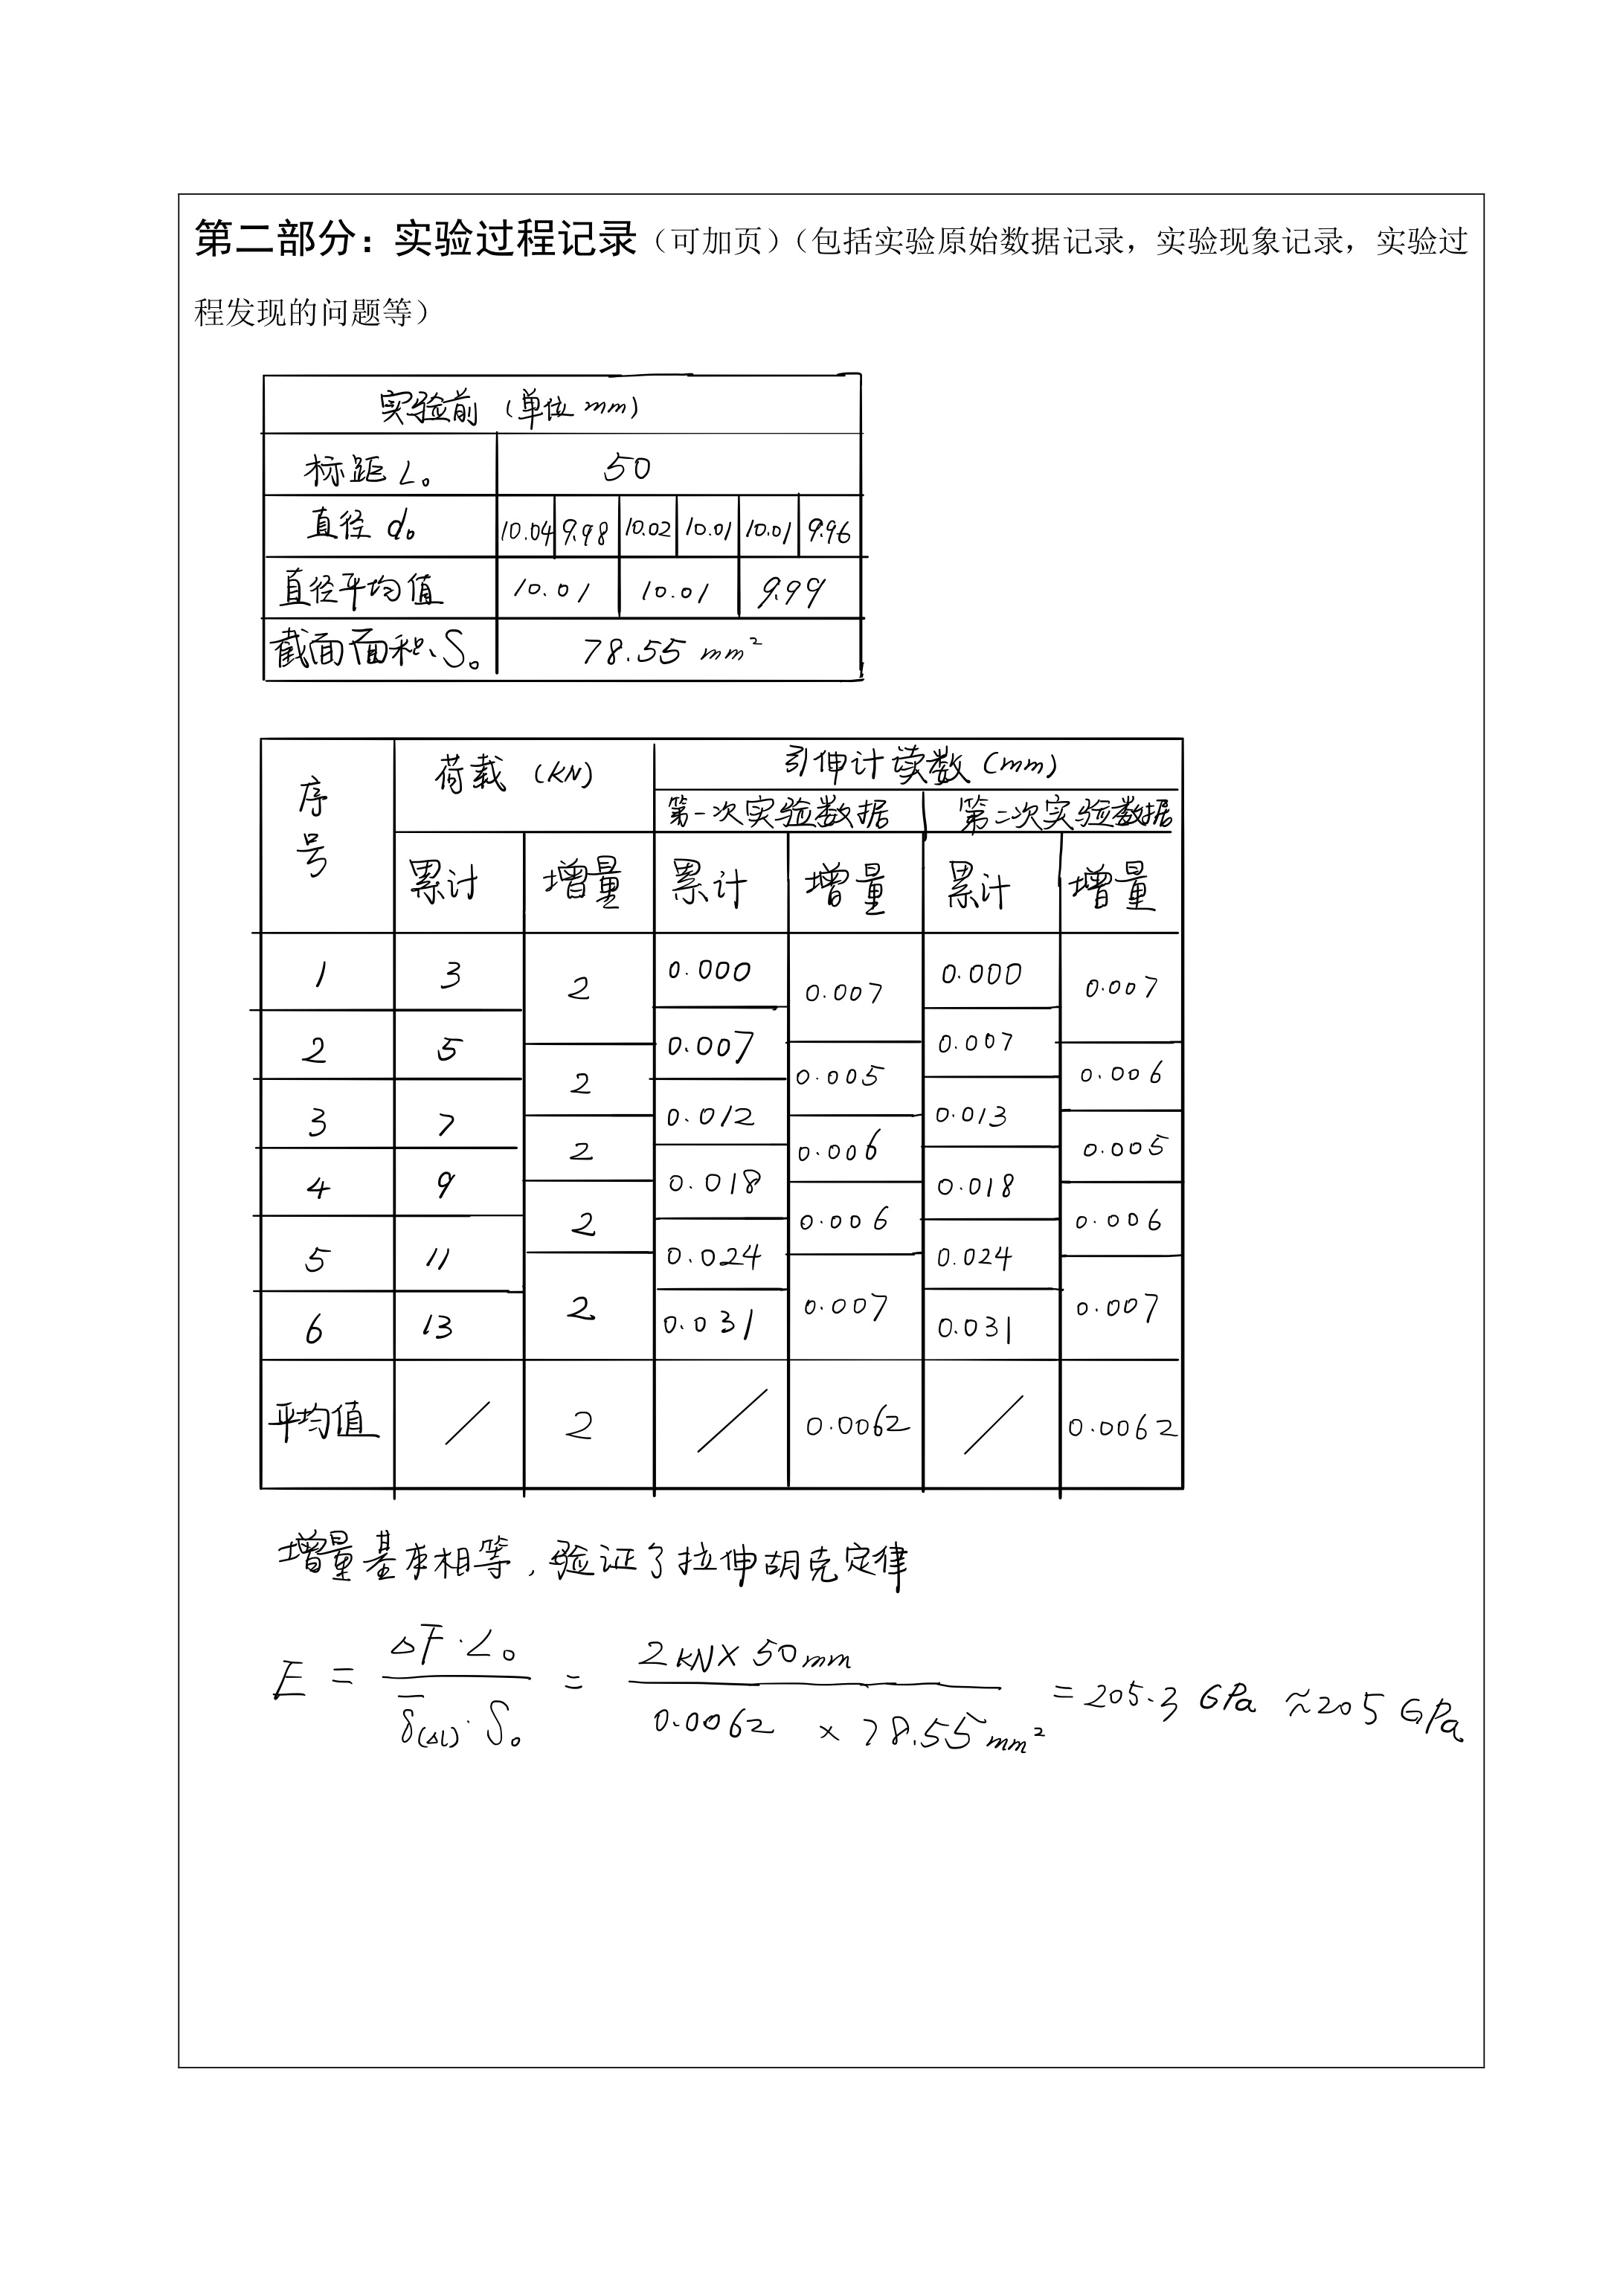 第二部分：实验过程记录（可加页）（包括实验原始数据记录，实验现象记录，实验过
程发现的问题等）
实验前（单位 mm）
标距 L₀ 50
直径 d₀ 10.04 9.98 10.02 10.01 10.01 9.96
直径平均值 10.01 10.01 9.99
截面面积 S₀ 78.55 mm²
序号 荷载（KN） 引伸计读数（mm）
第一次实验数据 第二次实验数据
累计 增量 累计 增量 累计 增量
1 3 2 0.000 0.007 0.000 0.007
2 5 2 0.007 0.005 0.007 0.006
3 7 2 0.012 0.006 0.013 0.005
4 9 2 0.018 0.006 0.018 0.006
5 11 2 0.024 0.007 0.024 0.007
6 13 0.031 0.031
平均值 / 2 / 0.0062 / 0.0062
增量基本相等，验证了拉伸胡克定律
E = ΔF·L₀ / δ̄(ΔL)·S₀ = 2kN×50mm / 0.0062 × 78.55mm² = 205.3 GPa ≈205 GPa